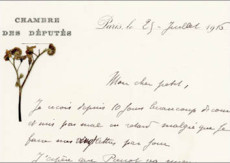 CHAMBRE
DES DÉPUTÉS
Paris, le 25 Juillet 1916
Mon cher petit,
Je reçois depuis 10 jours beaucoup de
et suis pas mal en retard malgré que je
fasse mes lettres par jour
J'espère que